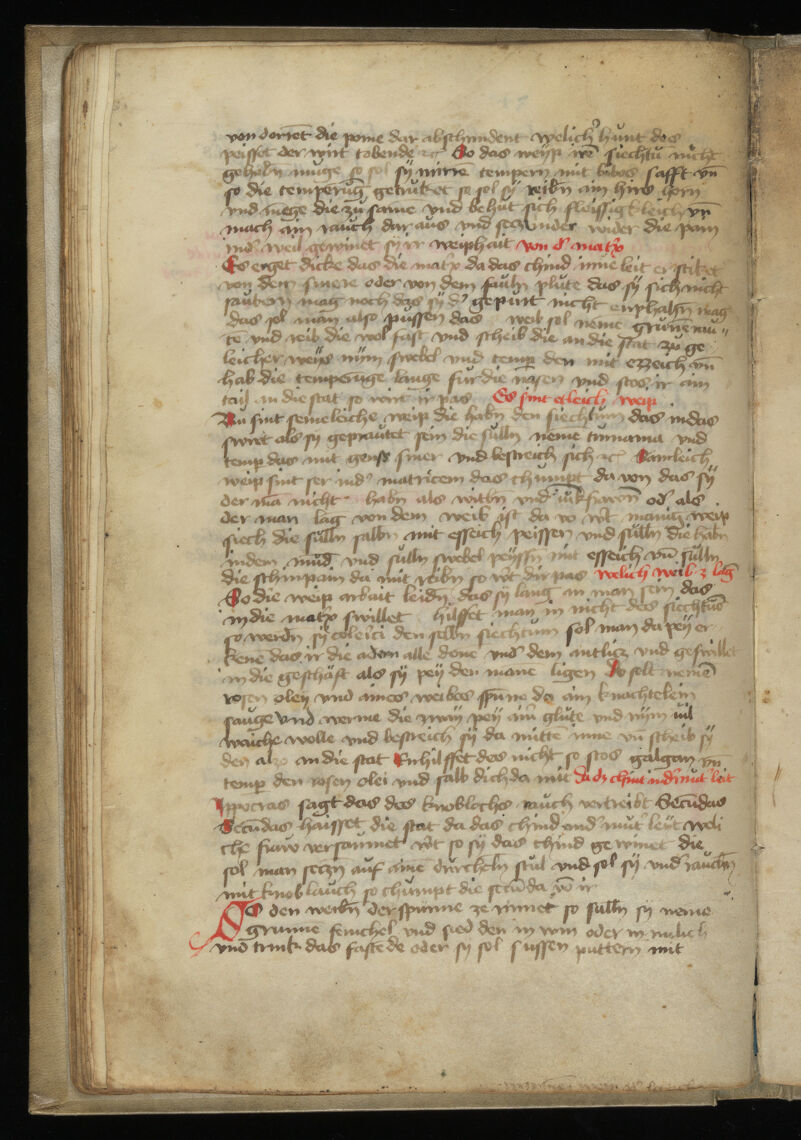 von dorret die pome dar abschindent welicher hunt des
peisset der wirt tobende So das weyp irn siechtu nicht
gehabn muge so sol sy mirre tempern mit bibos safft vn
so die temperug getruket so sol sy reibn ain hirs horn
vnd menge die zu same vnd behut sich fleissigkleich vn
mach ain rauch dar aus vnd secz vnder wider die pain
ind weil gewinet sy ir weiphait von d matrx
Es erget dicke das die matrx da das chind inne leit erstiket
von dem smere oder von dem fauln plute das sy sich nicht
saubern mag noch das sy d gepurt nicht enphahn mag
das sol man also pussen das weib sol neme grune rau
te vnd reib die wol fast vnd scheib die an die stat zu ge
leicher weys nym swebel vnd temp den mit ezzeich vn
hab die temperuge lange fur die nasen vnd stos ir ain
tail in die stat so wirt ir pas Es sint etleich weip
Nu sint semeleiche weip die habn den siechtum das in das
swirt als sy geprautet sein die sulln neme
temp das mit gense smer vnd bestreich sich Samleich
weip sint ser ind matricem das chumpt da von das sy
der man nicht habn als witibn vnd iukfrawen od als
der man lag von dem weib ist da vo wirt manig weip
siech die sulln salbn mit esseich peissen vnd sulln die habn
indem mund vnd sulln swebel mit esseich vn sulln
die schinpain da mit reibn so wirt dir pas welich weib z lag
So die weip arbait leidn das sy lang an man sein das
in die matrx swillet hilffet man in nicht des siechtus
so werdn sy coleici den selbn siechtum sol man da pey er
kene das ir die adern alle done vnd dem antlicz vnd geswillet
in die geschäft als sy pey den mane ligen So solt nemen
rosen oley vnd aines weibes spune da ain knachtelein
sauge vnd werme die zway pey ain glute vnd nym vil
waiche wolle vnd bestreich sy da mitte inne vn scheib sy
den also an die stat Enhilffet des nicht so stos galgan vn
temp den rosen olei vnd salb dich da mit da ds chint ind mut leit
Ippocras sagt das des knobloches rauch vertreibt Secundas
Secundas haisset die stat da das chind ind muter leyt weli
che fraw versaumet wirt so sy das chind gewinet die
sol man seczn auf aine durcheln stul vnd sol sy vnd rauchn
mit knoblauch so chumpt die secunda von ir
Os den weibn der spunne ze rinnet so sulln sy neme
grunne fenichel vnd sied den in win oder in milich
vnd trink das fastede oder sy sol sussen puttern mit